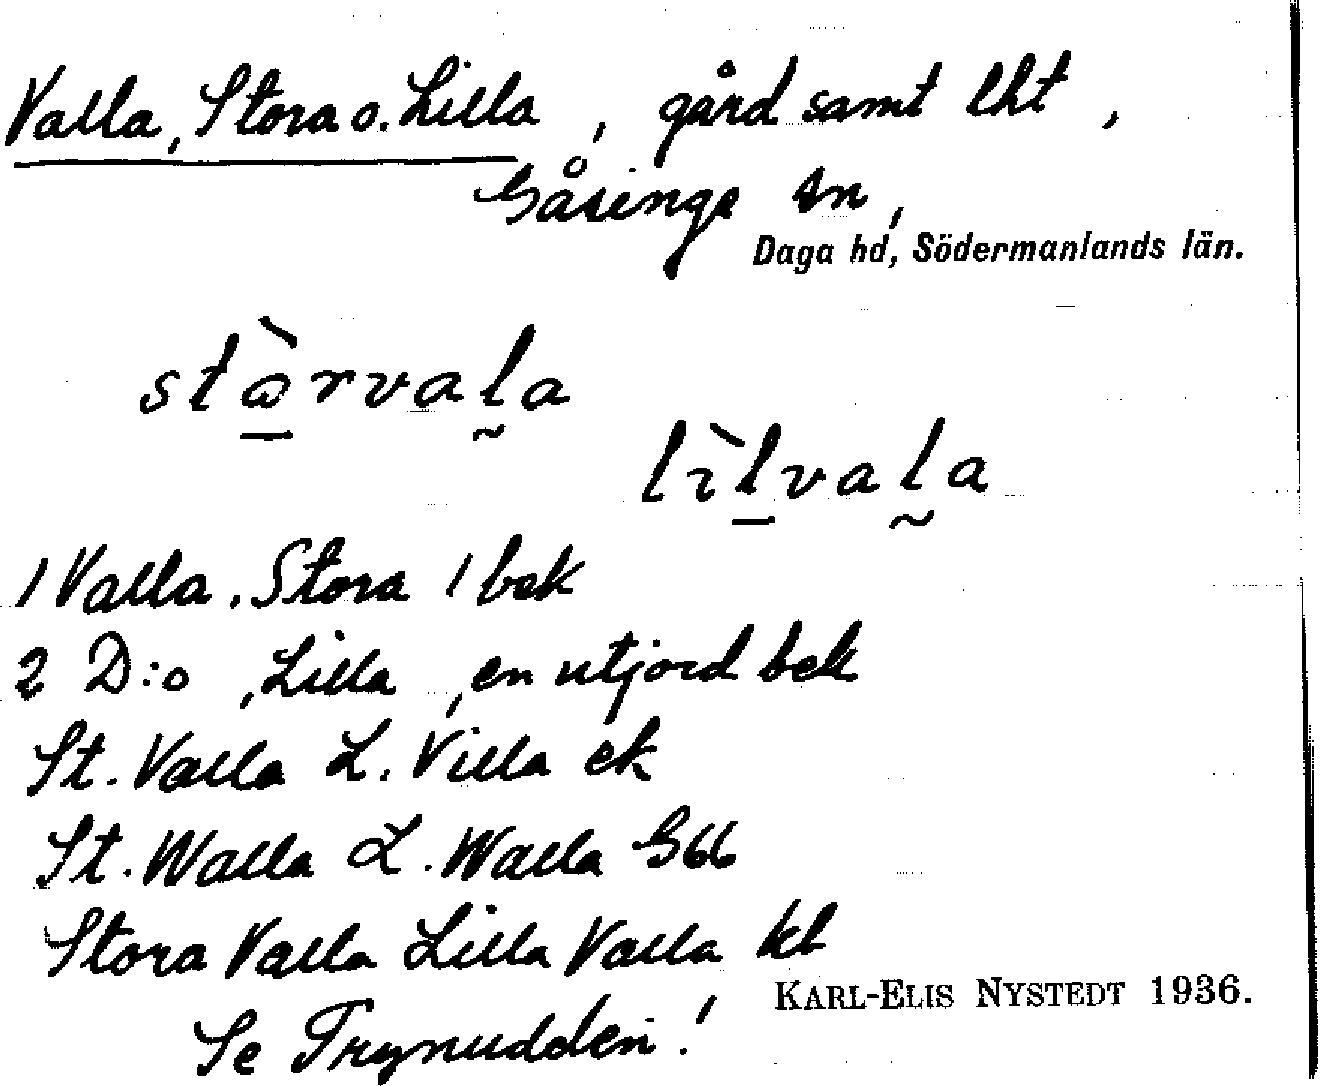 Valla, Stora o. Lilla, gård samt lht,
Gåsinge sn,
Daga hd, Södermanlands län.
stɷ̀rvala
lìlvala
1 Valla, Stora 1 bek
2 D:o, Lilla, en utjord bek
St. Valla L. Villa ek
St. Walla L. Walla G66
Stora Valla Lilla Valla kt
KARL-ELIS NYSTEDT 1936.
Se Frynudden!